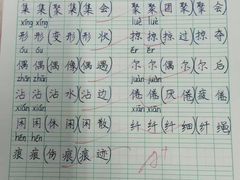 集集聚(集)集会 聚聚团(聚)聚会
lüè lüè
形形变(形)形状 掠掠(掠)过(掠)夺
ǒu ǒu ěr ěr
偶偶偶像(偶)遇 尔尔偶(尔)尔后
zhān zhān juàn juàn
沾沾沾水(沾)过 倦倦(厌倦)疲倦
xián xián xiān xiān
闲闲休(闲)闲散 纤纤(纤)细(纤)绳
hén hén
痕痕(伤痕)痕迹 A+